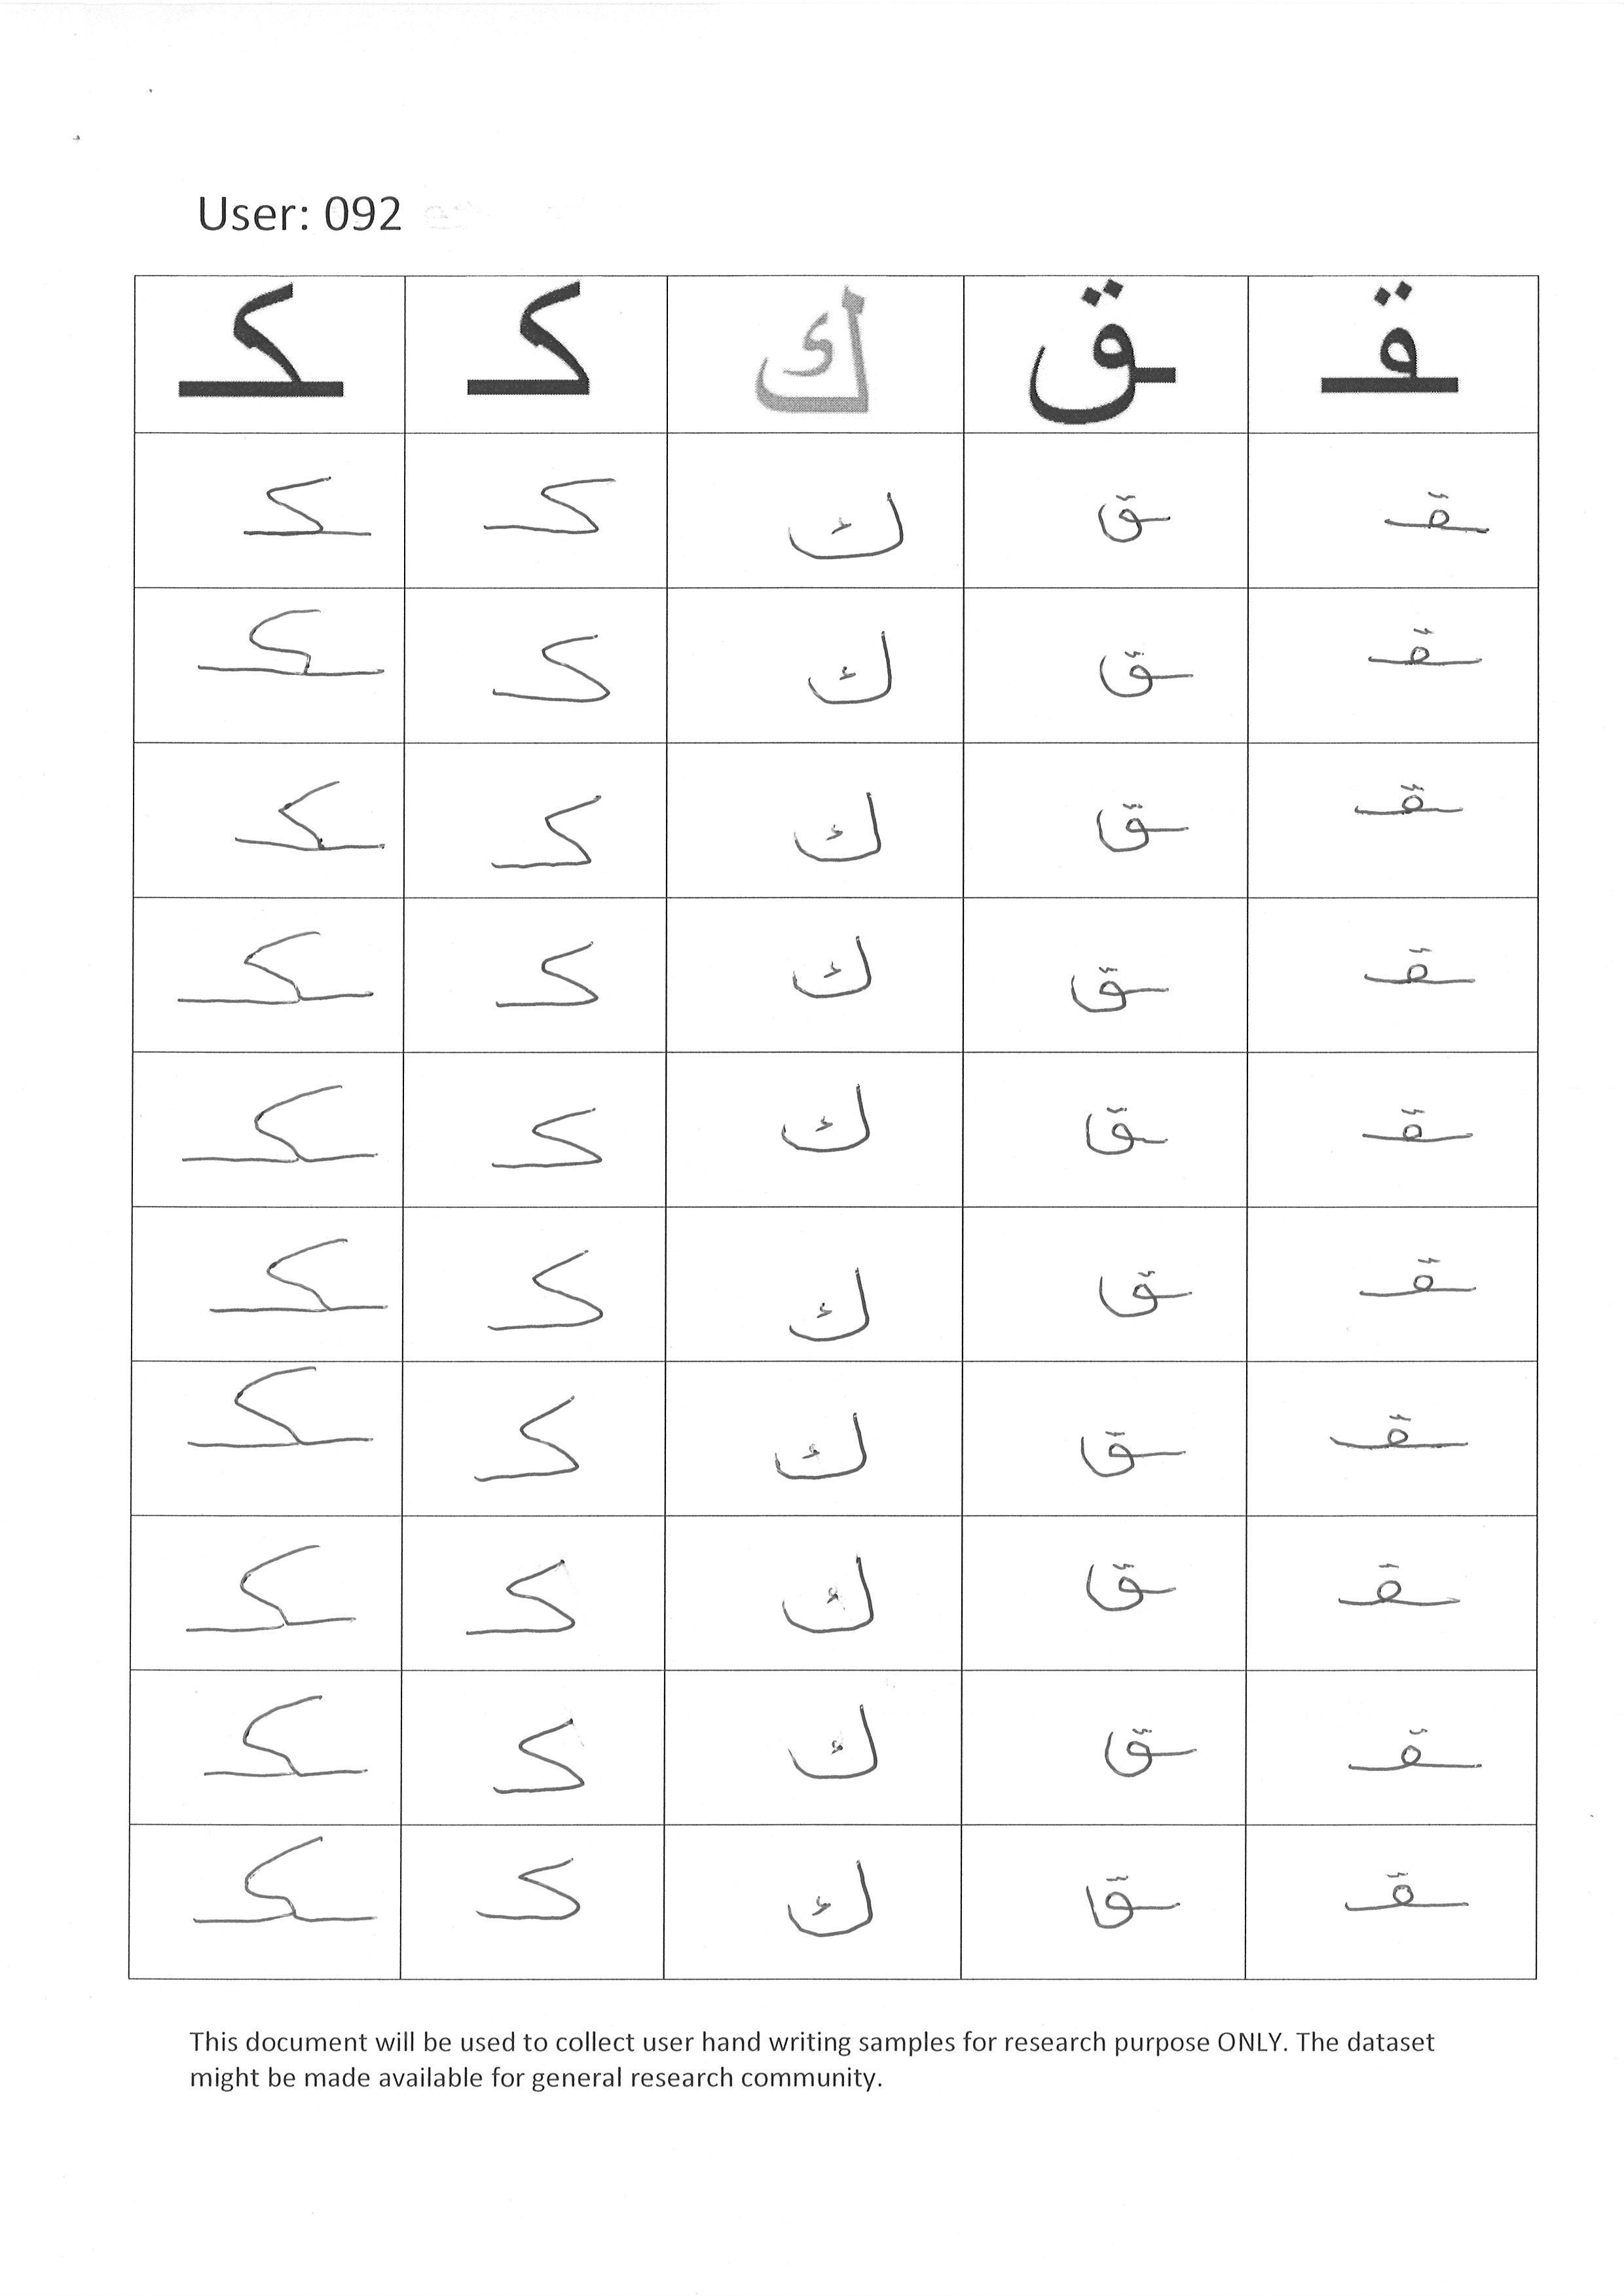 User: 092
ـكـ كـ ك ـق ـقـ
ـكـ كـ ك ـق ـقـ
ـكـ كـ ك ـق ـقـ
ـكـ كـ ك ـق ـقـ
ـكـ كـ ك ـق ـقـ
ـكـ كـ ك ـق ـقـ
ـكـ كـ ك ـق ـقـ
ـكـ كـ ك ـق ـقـ
ـكـ كـ ك ـق ـقـ
ـكـ كـ ك ـق ـقـ
ـكـ كـ ك ـق ـقـ
This document will be used to collect user hand writing samples for research purpose ONLY. The dataset
might be made available for general research community.